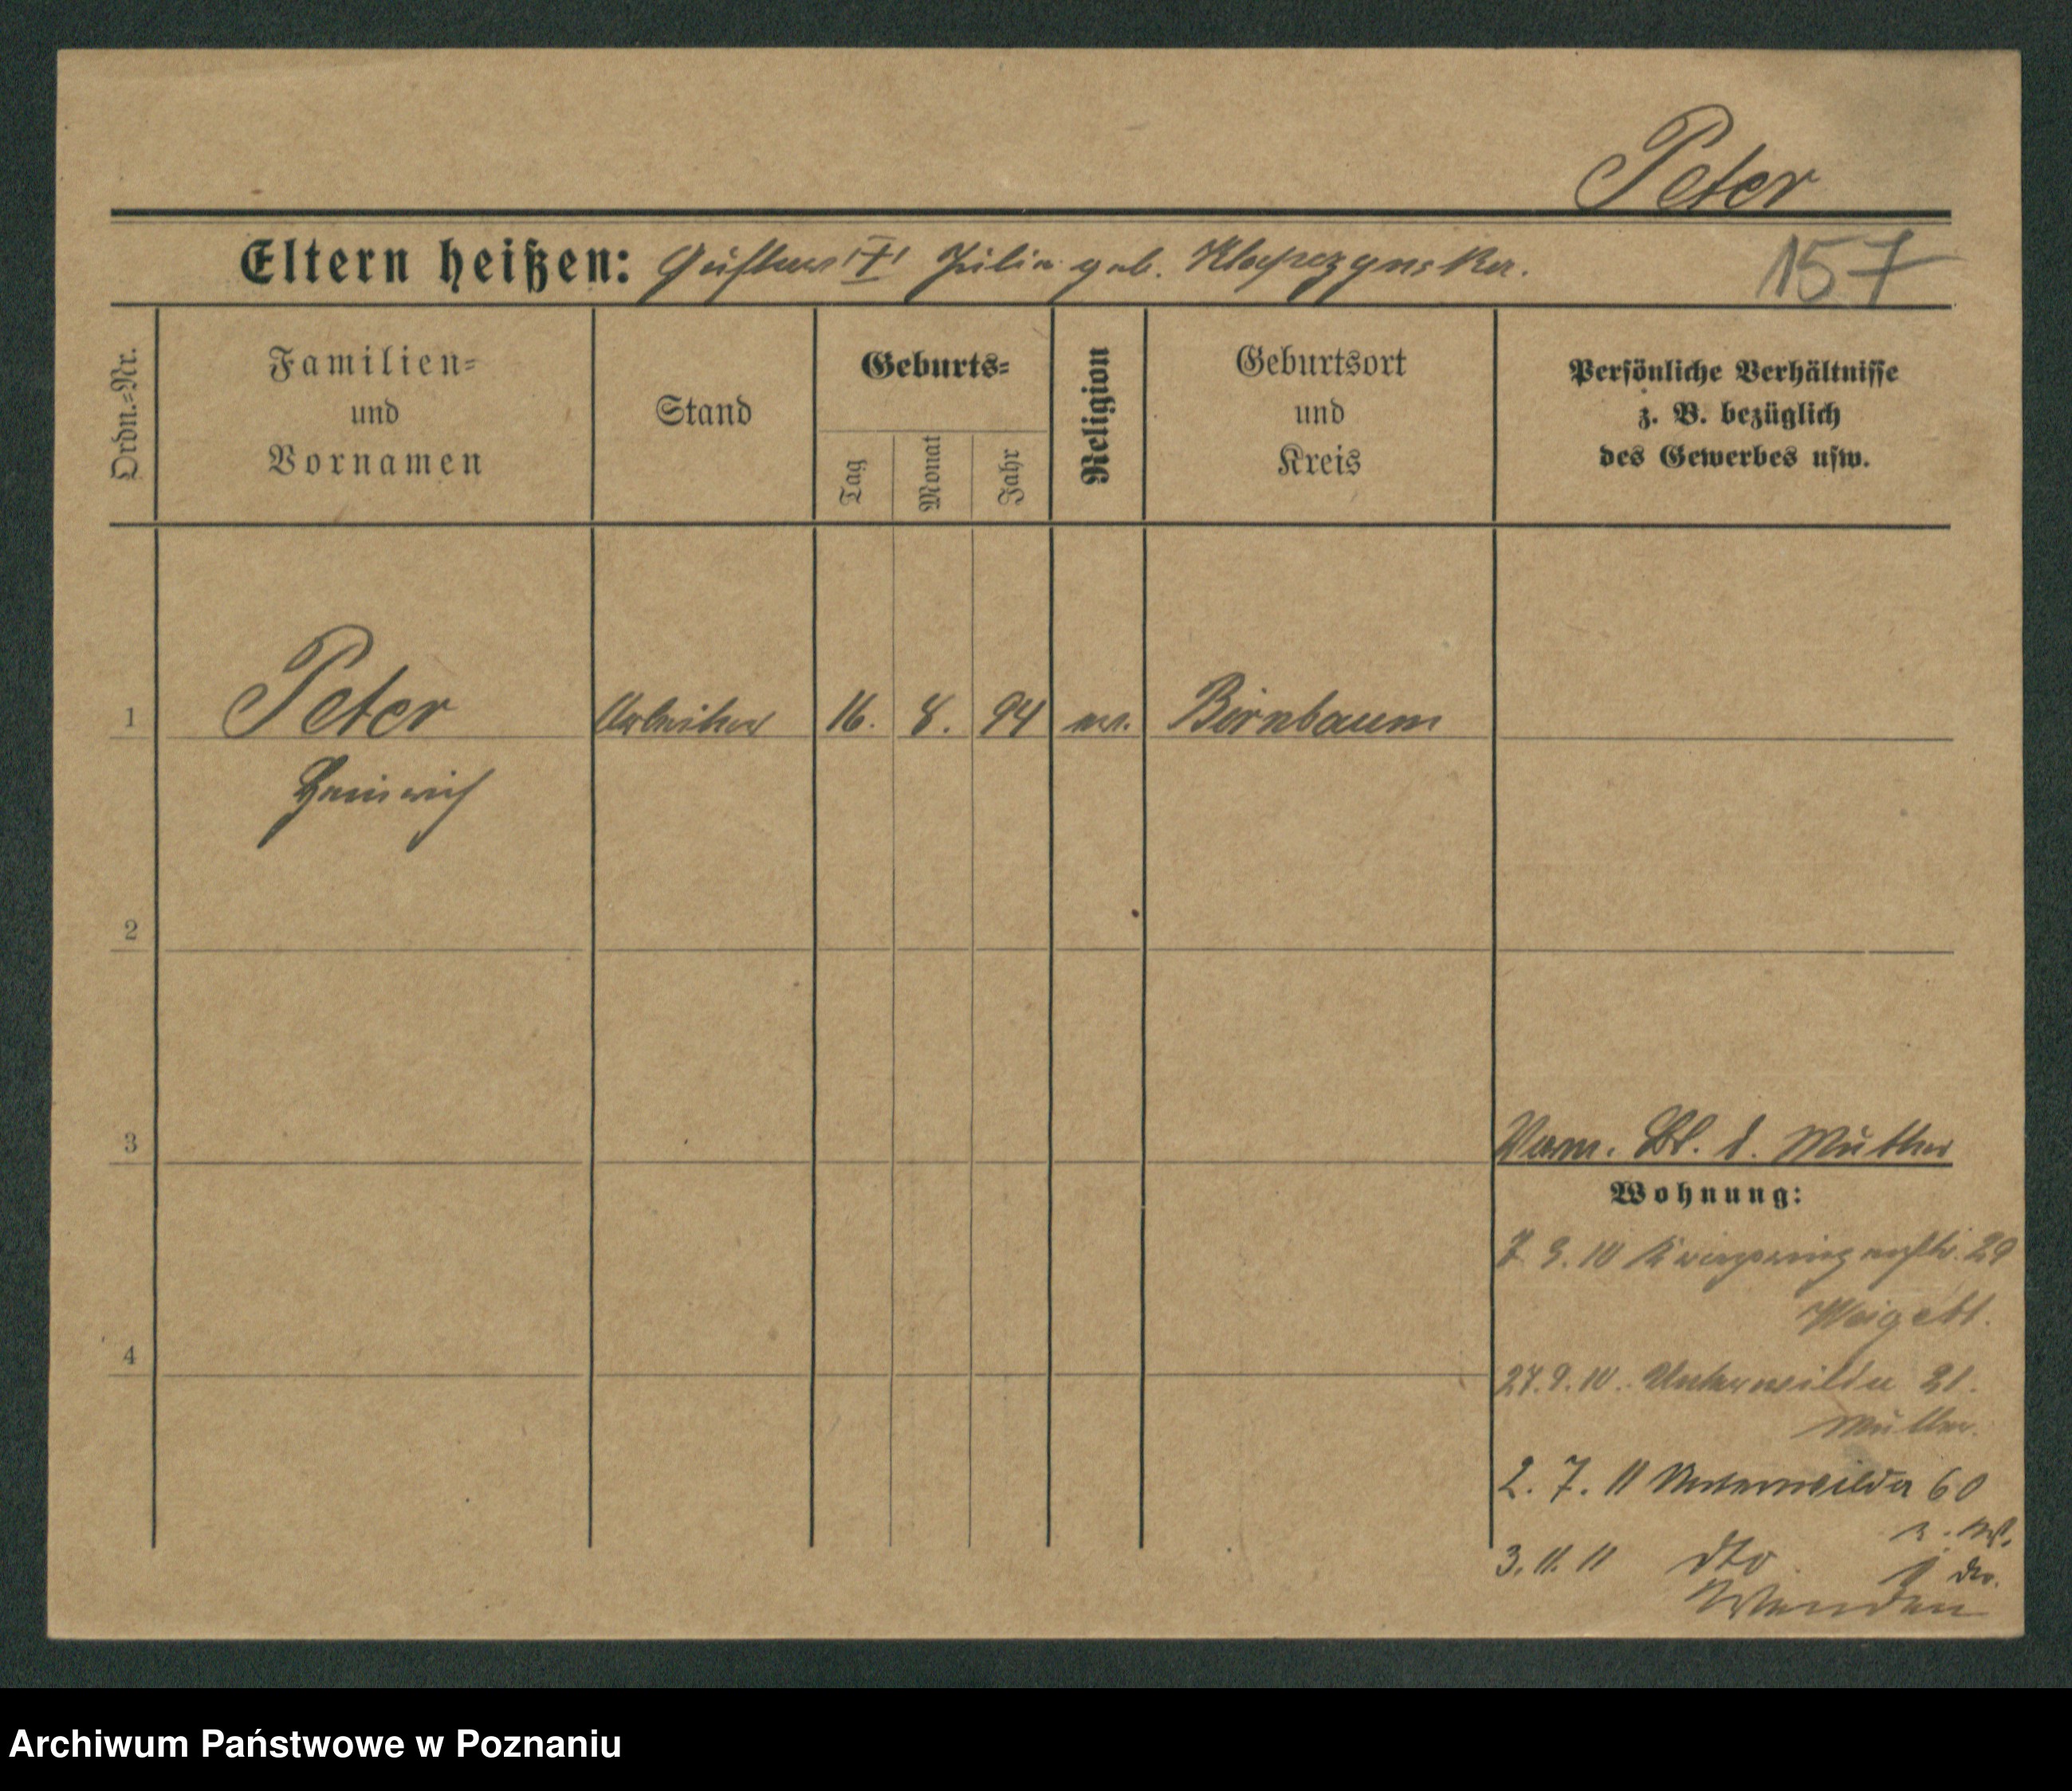 Peter
Eltern heißen: Gustav "†" Julia geb. Klapczynska.
157
Ordn.-Nr.
Familien-
und
Vornamen
Stand
Geburts-
Tag
Monat
Jahr
Religion
Geburtsort
und
Kreis
Persönliche Verhältnisse
z. B. bezüglich
des Gewerbes usw.
1
Peter
Arbeiter
16.
8.
94
ev.
Birnbaum
Heinrich
2
3
Verm. Bl. d. Mutter
Wohnung:
7. 3. 10 29
4
27. 9. 10. Unterwilda 21.
Mutter.
2. 7. 11 Unterwilda 60
3. 11. 11 dto
Wenden
Archiwum Państwowe w Poznaniu